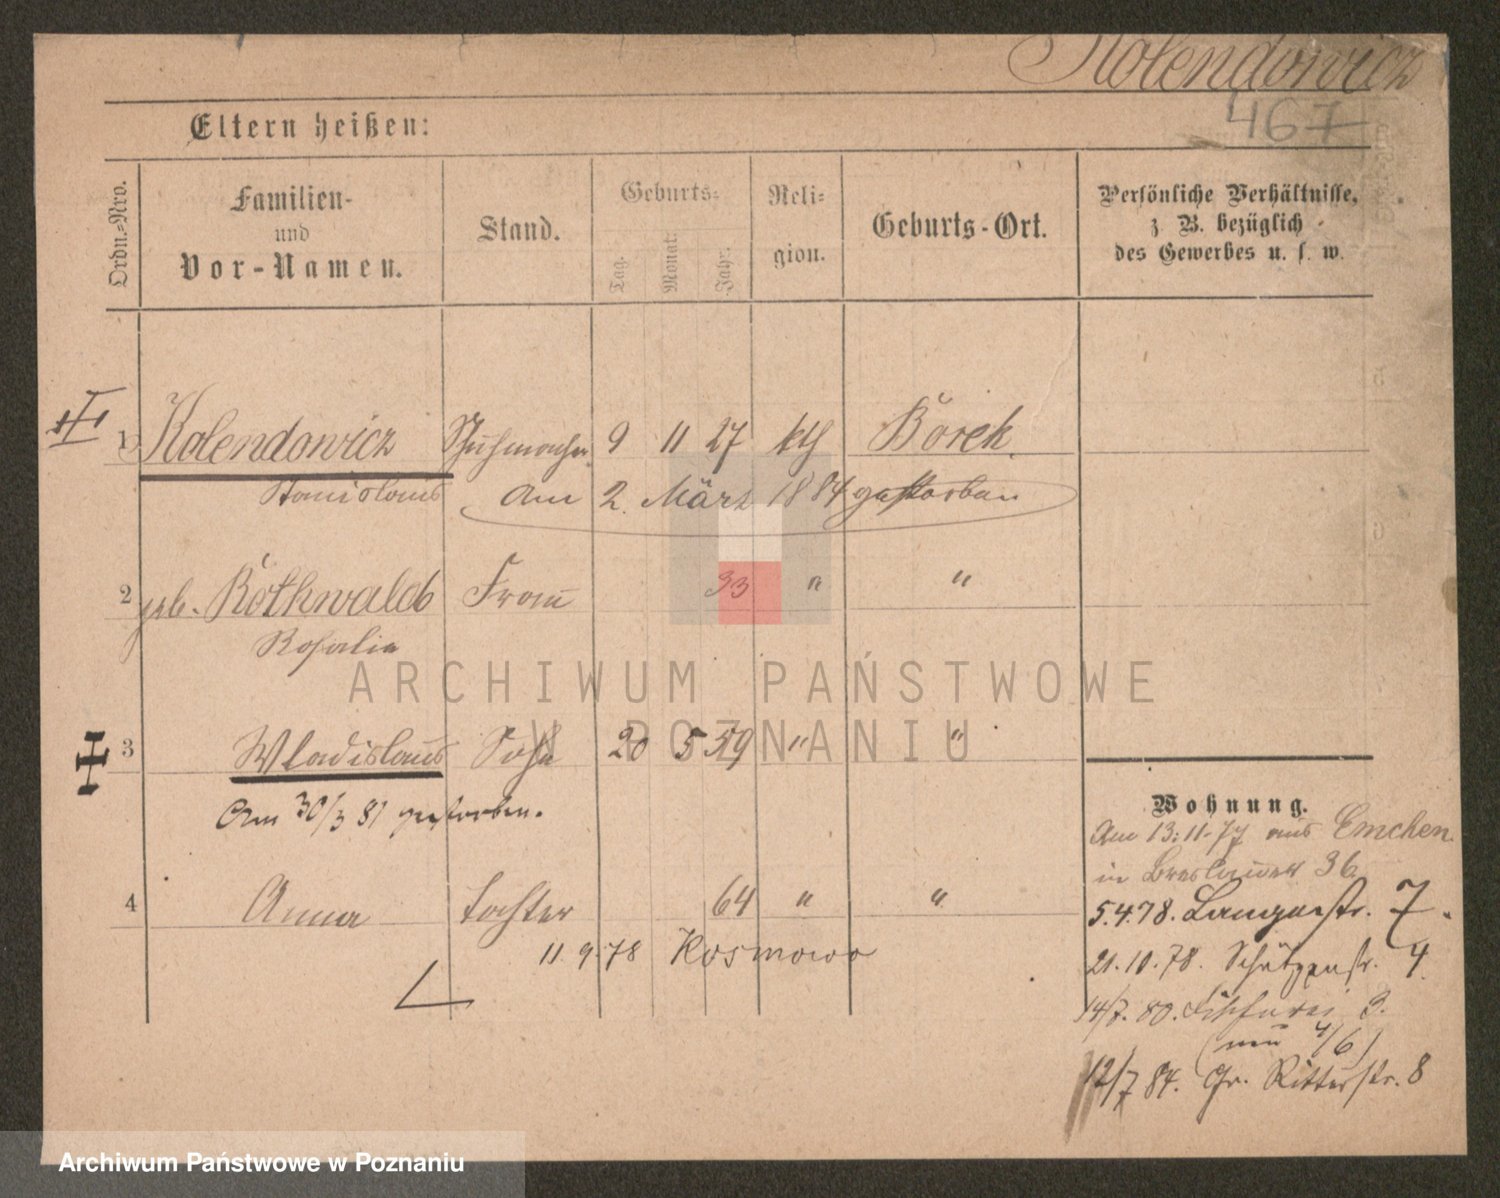 Kolendowicz
467
Eltern heißen:
Ordn.=Nro.
Familien-
und
Vor-Namen.
Stand.
Geburts=
Tag.
Monat:
Jahr:
Reli=
gion.
Geburts-Ort.
Persönliche Verhältnisse,
z. B. bezüglich
des Gewerbes u. s. w.
1 Kolendowicz Schuhmacher 9 11 27 kth Borek.
Stanislaus am 2. März 1884 gestorben
2 geb. Rothwald Frau 33 " "
Rosalie
3 Wladislaus Sohn 20 5 59 " "
Am 30/3 81 gestorben.
4 Anna Tochter 64 " "
11.9.78 Kosmowo
Wohnung.
Am 13.11.77 aus Emchen
in Breslauer 36
5.4.78. Langestr. 7.
21.10.78. Schützenstr. 4.
14/7. 80. Fischerei 3.
(neu 4/6)
12/7 84. Gr. Ritterstr. 8
ARCHIWUM PAŃSTWOWE
W POZNANIU
Archiwum Państwowe w Poznaniu